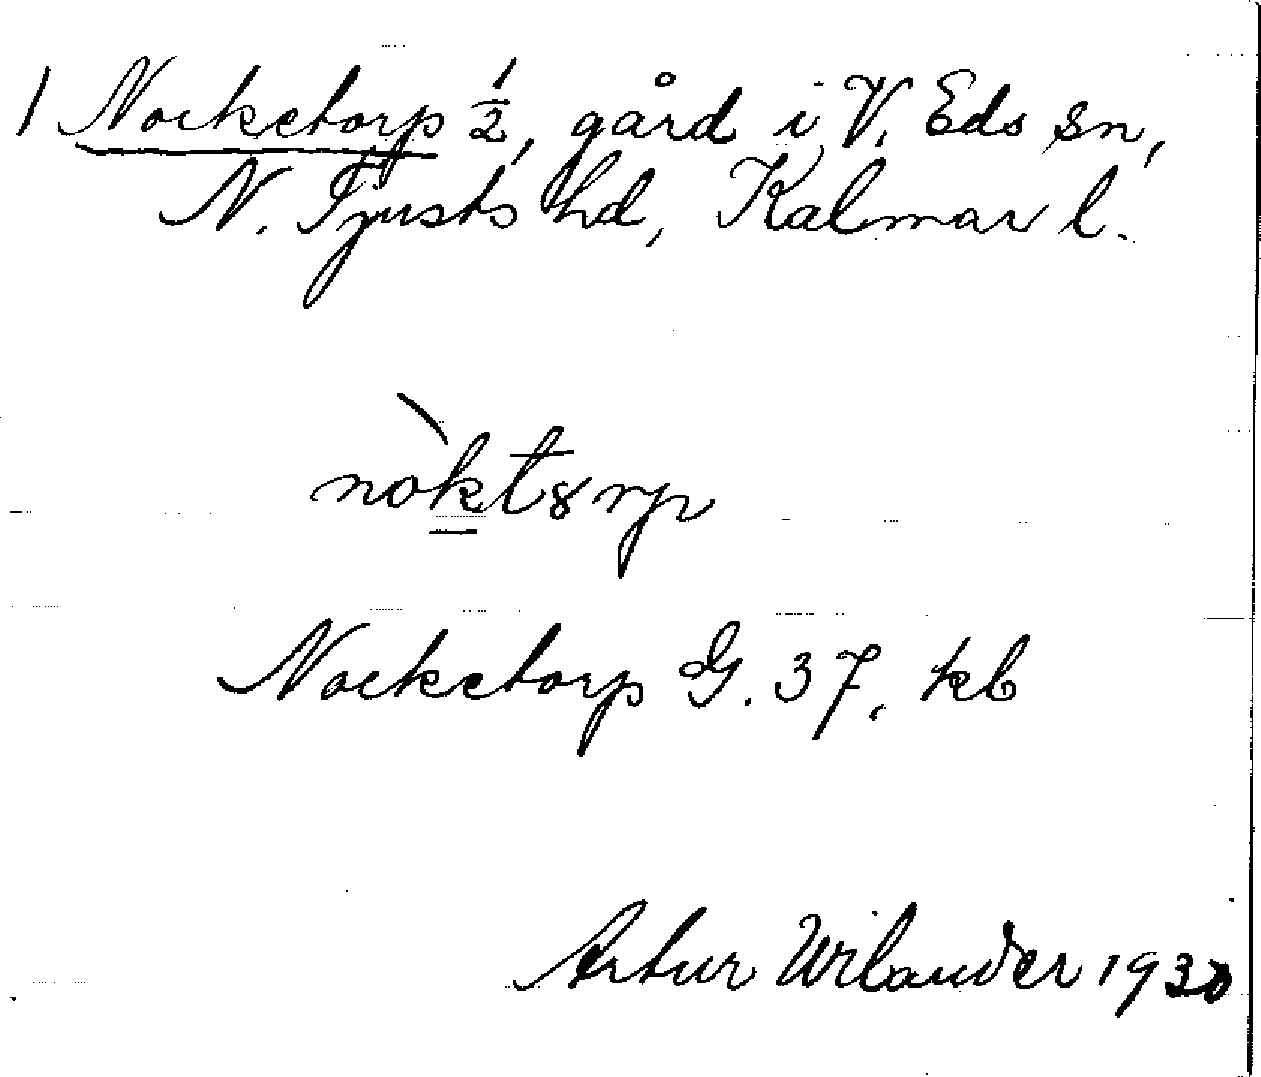 1 Nocketorp ½, gård i V. Eds sn,
N. Tjusts hd, Kalmar l.
nòktȣrp
Nocketorp G. 37, kb
Artur Wilander 1930